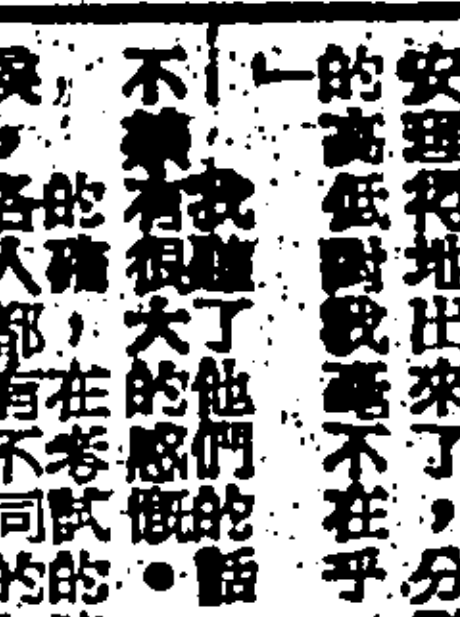 安理得地出來了，分
的高低對我毫不在乎
」
我聽了他們的話
不禁有很大的感慨。
的確，在考試的
淚，各人都有不同的